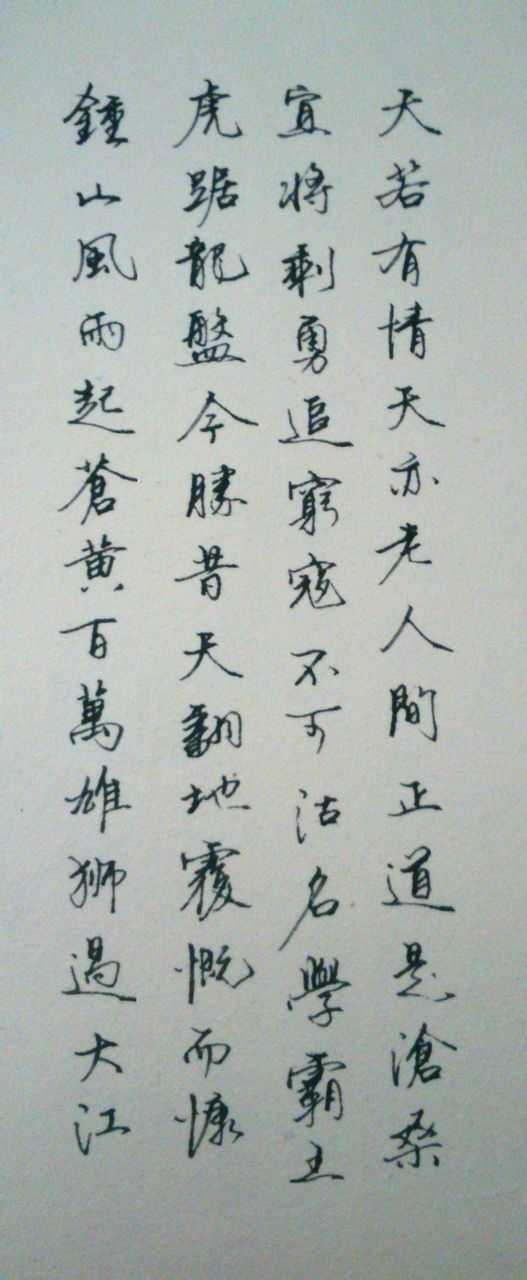 鍾山風雨起蒼黃百萬雄獅過大江
虎踞龍盤今勝昔天翻地覆慨而慷
宜將剩勇追窮寇不可沽名學霸王
天若有情天亦老人間正道是滄桑